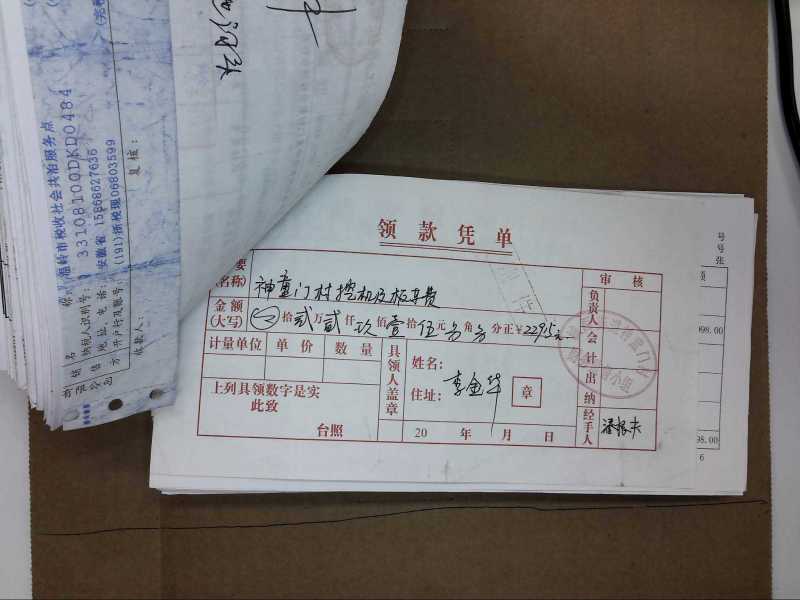 温岭市税收社会共治服务点
33108100DKD0484
纳税人识别号：
地址、电话：安徽省 15868627636
开户行及账号：(191)浙税现06803599
收款人：
复核：
领款凭单
要
(名称)
神童门村挖机及板车费
审核
金额
(大写)
拾贰万贰仟玖佰壹拾伍元角分正￥22915元
负责人
会计
出纳
经手人
计量单位 单价 数量
具领人盖章
姓名：
住址：
李金华
章
上列具领数字是实
此致
台照
20 年 月 日
号
号
张
098.00
98.00
6